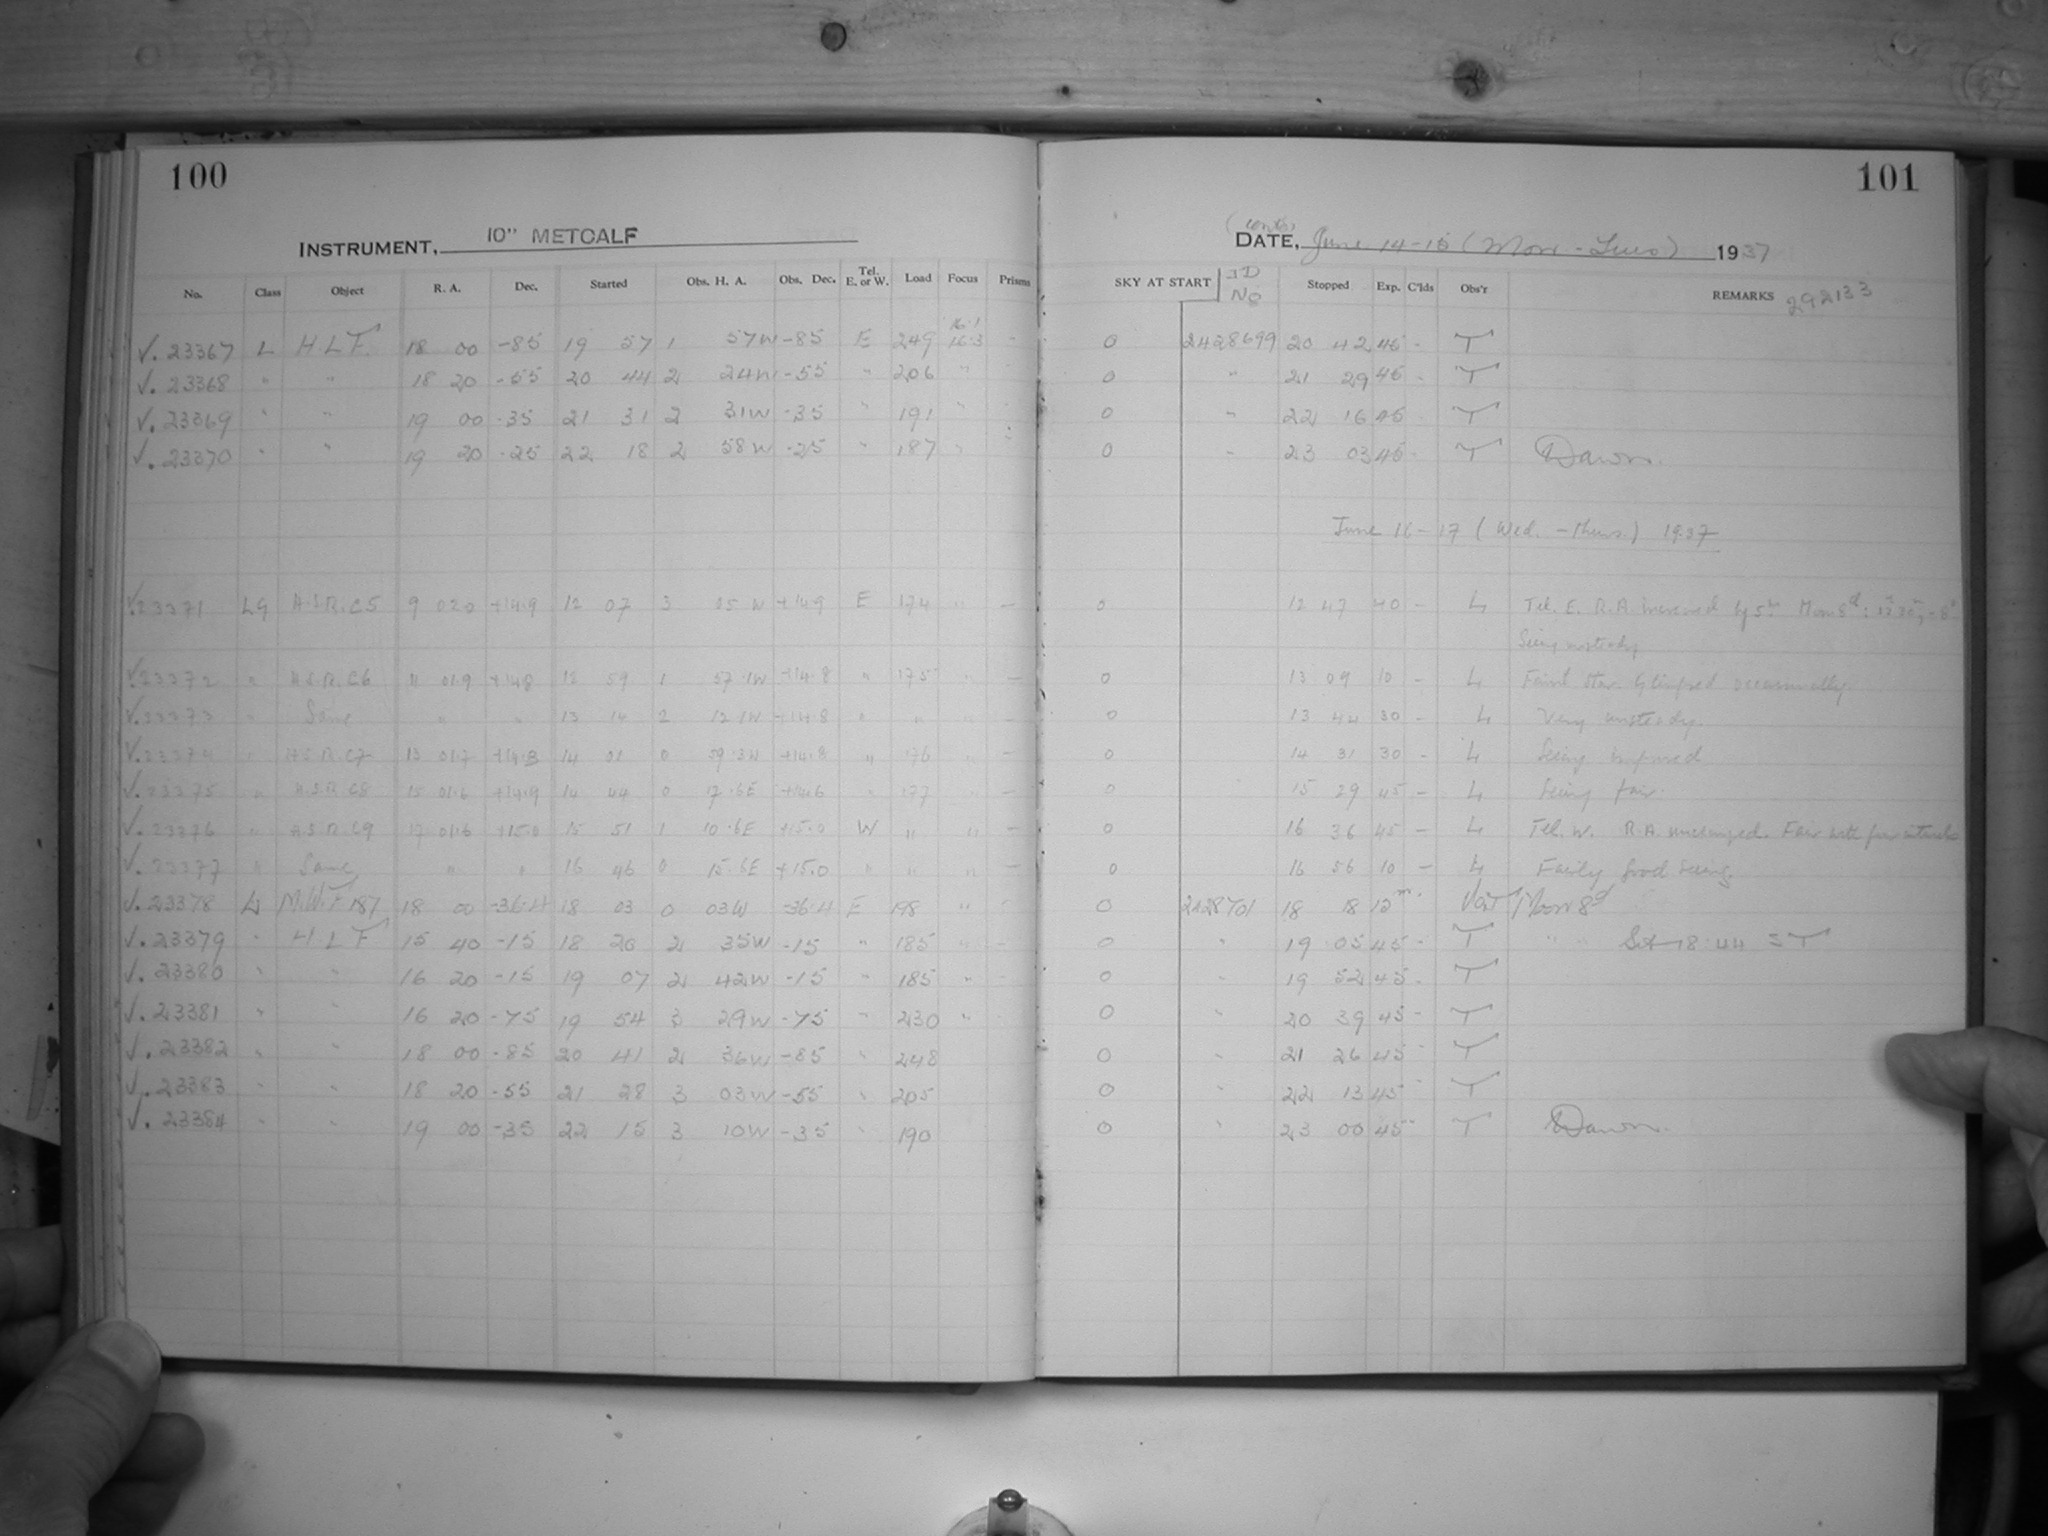 100
INSTRUMENT, 10" METCALF
No. Class Object R. A. Dec. Started Obs. H. A. Obs. Dec. Tel. E. or W. Load Focus Prisms
√. 23367 L H.L.T. 18 00 -85 19 57 1 57W -85 E 249 16.1 16.3 -
√. 23368 " " 18 20 -55 20 44 2 24W -55 " 206 "
√. 23369 " " 19 00 -35 21 31 2 31W -35 " 191 "
√. 23370 " " 19 20 -25 22 18 2 58W -25 " 187 "
√. 23371 LG A.S.R.C5 9 02.0 +14.9 12 07 3 +14.9 E 174 " -
√. 23372 " A.S.R.C6 11 01.9 +14.8 12 59 1 57.1W +14.8 " 175 " -
√. 23373 " Same " " 13 14 2 12.1W +14.8 " " " -
√. 23374 " A.S.R.C7 13 01.7 +14.8 14 01 0 59.3W +14.8 " 176 " -
√. 23375 " A.S.R.C8 15 01.6 +14.9 14 44 0 17.6E +14.6 " 177 " -
√. 23376 " A.S.R.C9 17 01.6 +15.0 15 51 1 10.6E +15.0 W " " -
√. 23377 " Same " " 16 46 0 15.6E +15.0 " " " -
√. 23378 L M.W.F 187 18 00 -36.4 18 03 0 03W -36.4 E 198 " -
√. 23379 " H L T 15 40 -15 18 20 2 35W -15 " 185 " -
√. 23380 " " 16 20 -15 19 07 2 42W -15 " 185 " -
√. 23381 " " 16 20 -75 19 54 3 29W -75 " 230 "
√. 23382 " " 18 00 -85 20 41 2 36W -85 " 248
√. 23383 " " 18 20 -55 21 28 3 03W -55 " 205
√. 23384 " " 19 00 -35 22 15 3 10W -35 " 190
101
(contd)
DATE, June 14-15 (Mon - Tues) 1937
SKY AT START JD No Stopped Exp. C'lds Obs'r REMARKS 292133
0 2428699 20 42 45 - T
0 " 21 29 45 - T
0 " 22 16 45 T
0 " 23 03 45 - T Dawn.
June 16-17 (Wed. - Thurs.) 1937
0 12 47 40 - L Tel. E. R.A. increased by 5m. Moon 8d:
Seeing unsteady
0 13 09 10 - L Faint star. Glimpsed occasionally.
0 13 44 30 - L Very unsteady.
0 14 31 30 - L Seeing improved
0 15 29 45 - L Seeing fair.
0 16 36 45 - L Tel. W. R.A. unchanged. Fair with
0 16 56 10 - L Fairly good seeing.
0 2428701 18 18 15m. T Moon 8d
0 " 19 05 45 - T " " Set 18:44 ST
0 " 19 52 45 - T
0 " 20 39 45 - T
0 " 21 26 45 - T
0 " 22 13 45 - T
0 " 23 00 45 - T Dawn.